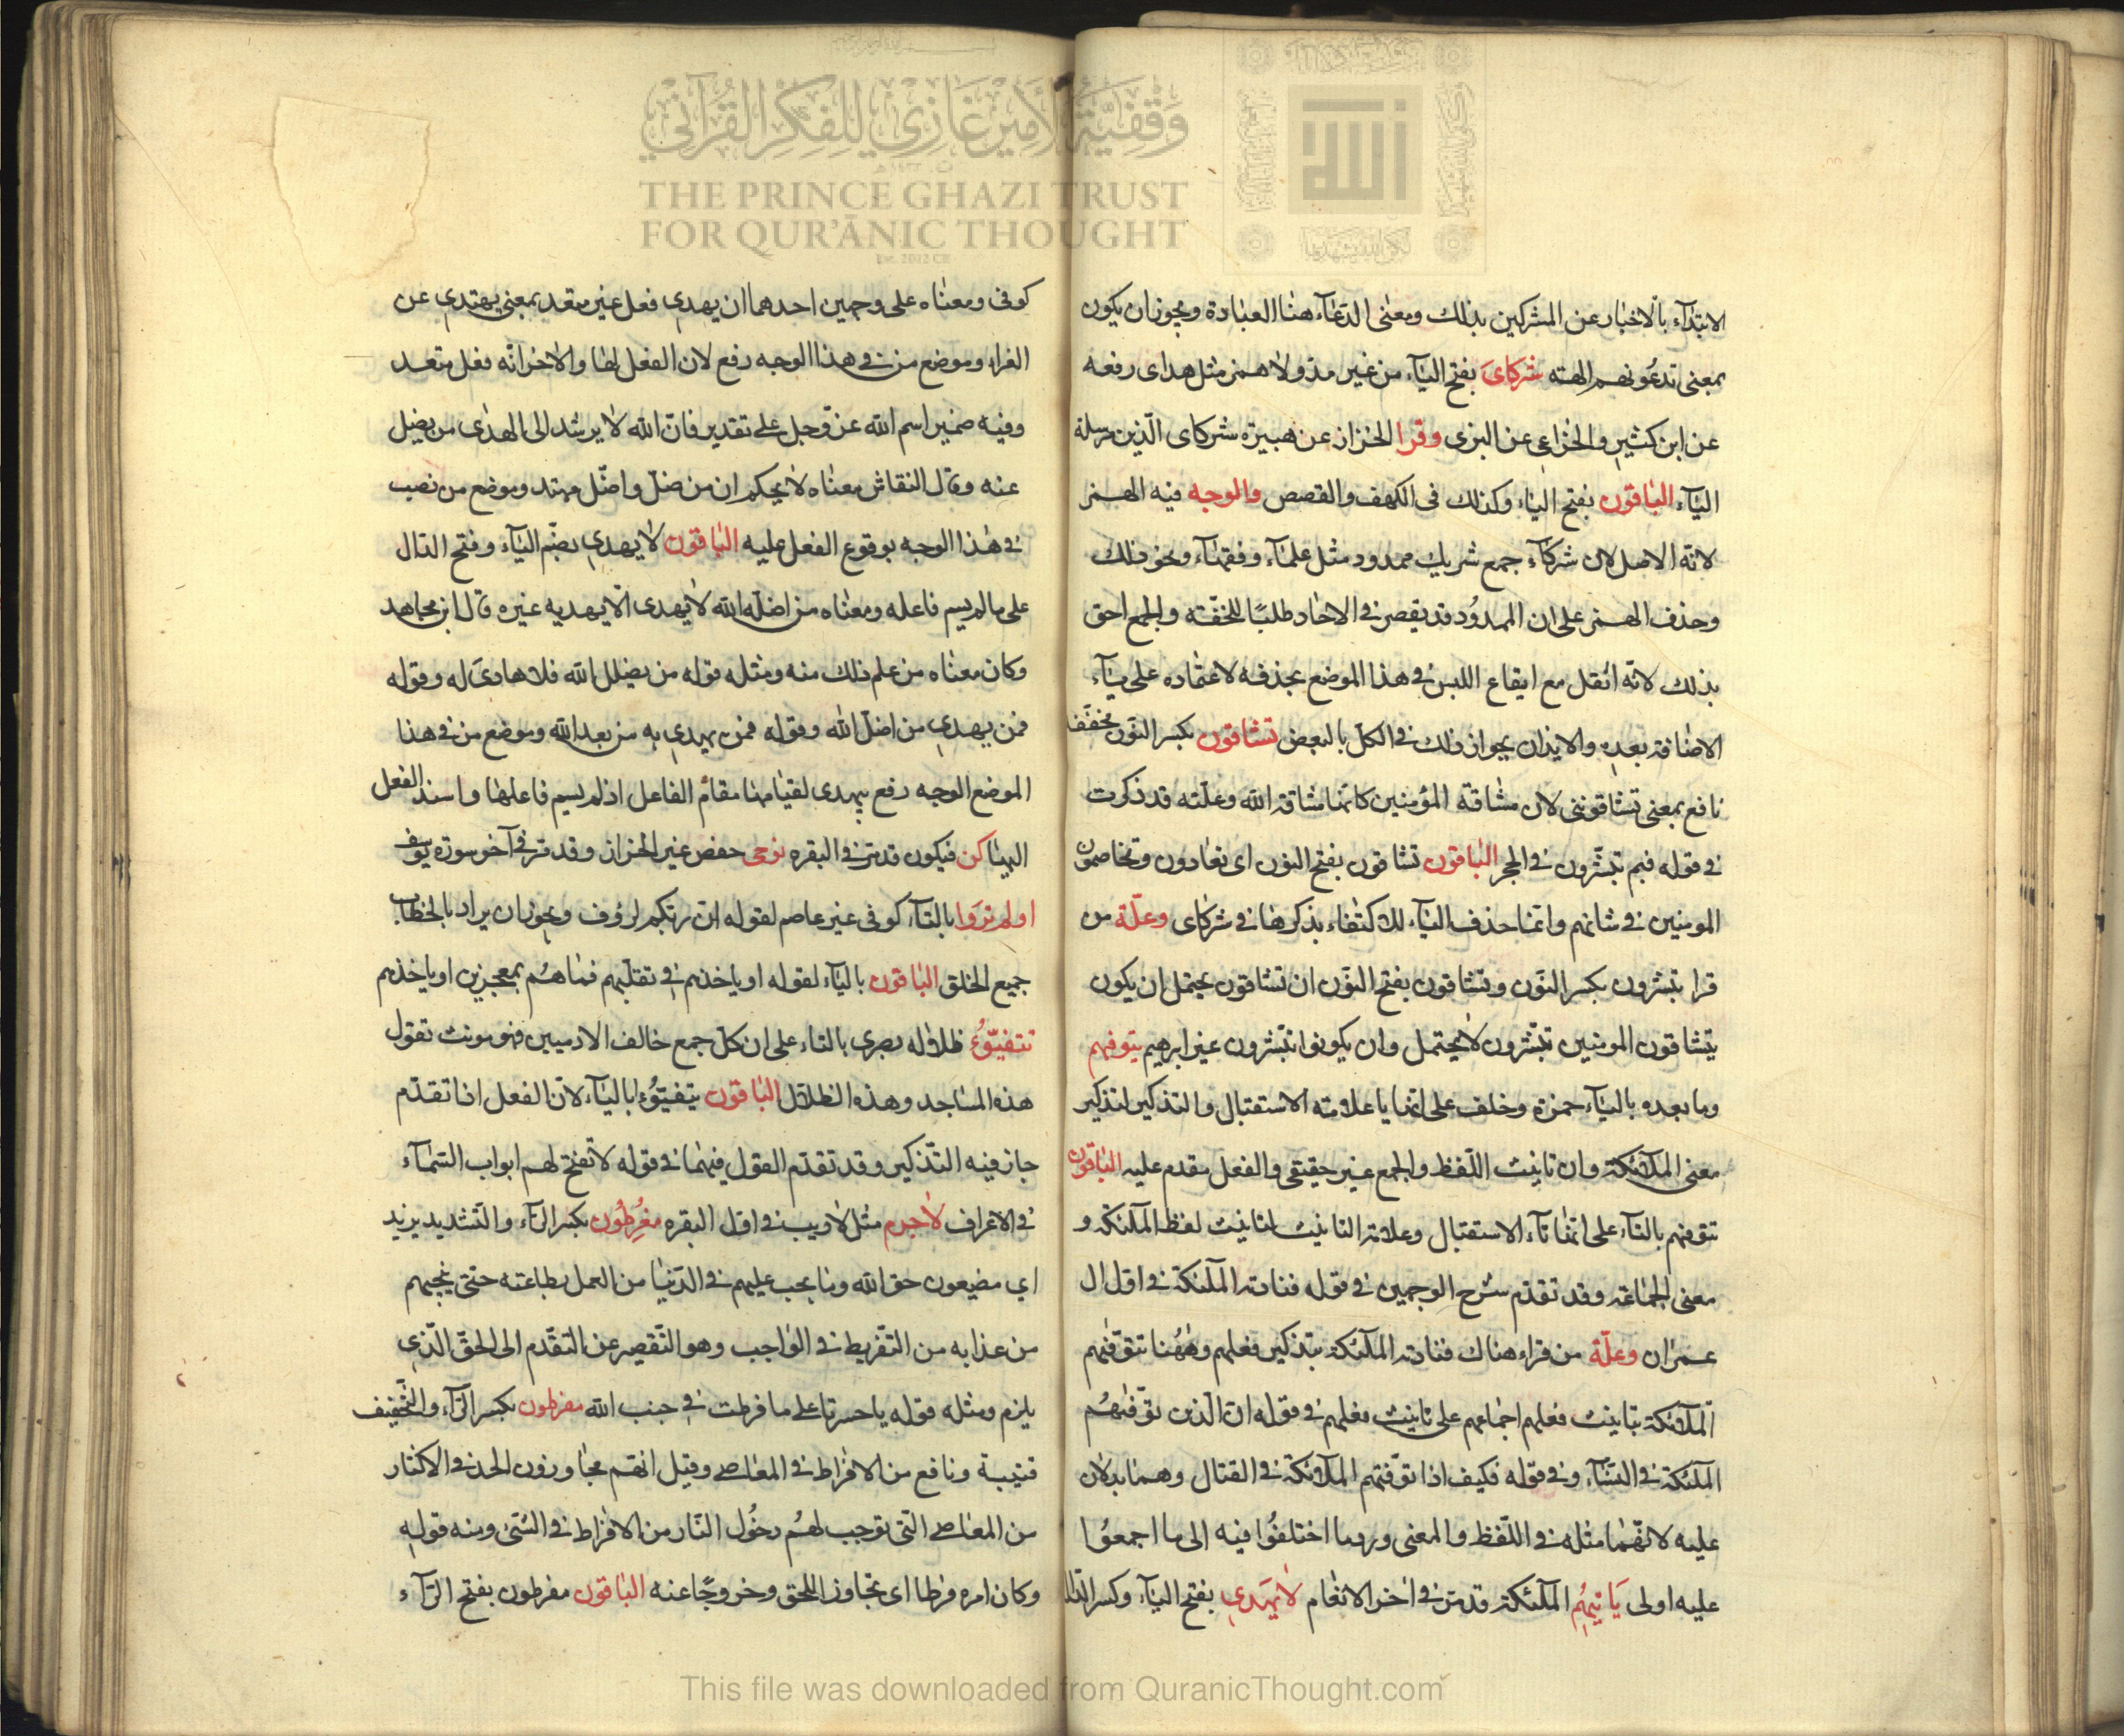 وقفية الأمير غازي للفكر القرآني
THE PRINCE GHAZI TRUST
FOR QUR'ĀNIC THOUGHT
الله
الابتدآء بالاخبار عن المشركين بذلك ومعنى الدعآء هنا العبادة ويجوز ان يكون
بمعنى تدعونهم الهته شركاىَ بفتح اليآء من غير مد ولا همز مثل هداى رفعه
عن ابن كثير والخزاعى عن البزى وقرا الخزاز عن هبيرة شركاى الّذين مرسلة
اليآء الباقون بفتح الياء وكذلك فى الكهف والقصص والوجه فيه الهمز
لانّه الاصل لان شركآء جمع شريك ممدود مثل علمآء وفقهآء ونحو ذلك
وحذف الهمز على ان الممدُود قد يقصر في الاحاد طلبًا للخفّة والجمع احق
بذلك لانّه اثقل مع ايقاع اللبس في هذا الموضع بحذفه لاعتماده على يآء
الاضافة بعده والايذان بجواز ذلك في الكلّ بالبعض تشاقون بكسر النّون مخفّفة
نافع بمعنى تشاقوننى لان مشاقة المؤمنين كانها مشاقة الله وعلّته قد ذكرت
في قوله فبم تبشّرون في الحجر الباقون تشاقون بفتح النون اى تعادون وتخاصمون
المومنين في شانهم وانما حذف اليآء للاكتفاء بذكرها في شركاى وعلّة من
قرا تبشرون بكسر النّون وتشاقون بفتح النّون ان تشاقون يحتمل ان يكون
يتشاقون المومنين تبّشرون لايحتمل وان يكونوا تبّشرون غير ابرهيم يتوفهم
وما بعده باليآء حمزة وخلف على انها يا علامته الاستقبال والتذكير لتذكير
معنى الملائكة وان تانيث اللّفظ والجمع غير حقيقى والفعل مقدم عليه الباقون
تتوفهم بالتآء على انّها تآء الاستقبال وعلامة التانيث لتانيث لفظ الملئكة و
معنى الجماعة وقد تقدّم شرح الوجهين في قوله فنادته الملئكة في اوّل ال
عمران وعلّة من قراء هناك فنادته الملئكة بتذكير فعلهم وههُنا تتوّفهم
الملائكة بتانيث فعلهم اجماعهم على تانيث فعلهم في قوله ان الّذين توّفهُم
الملئكة في النسآء وفي قوله فكيف اذا توّفتهم الملائكة في القتال وهما يدلان
عليه لانّهما مثله في اللّفظ والمعنى ورد ما اختلفُوا فيه الى ما اجمعوُا
عليه اولى يَاتيهُم الملئكة قد مرّ في اخر الانعام لايَهدِي بفتح اليآء وكسر الدّال
كوفى ومعناه على وجهين احدهما ان يهدى فعل غير متعد بمعنى يهتدى عن
الفراء وموضع من في هذا الوجه رفع لان الفعل لها والاخر انّه فعل متعد
وفيه ضمير اسم الله عزّ وجل على تقدير فانّ الله لا يرشد الى الهدى من يضل
عنه وقال النقاش معناه لا يحكم ان من ضلّ واضّل مهتد وموضع من نصب
في هذا الوجه بوقوع الفعل عليه الباقون لا يهدى بضّم اليآء وفتح الدال
على ما لم يسم فاعله ومعناه من اضله الله لا يهدى اى لا يهديه غيره قال ابن مجاهد
وكان معناه من علم ذلك منه ومثله قوله من يضلل الله فلا هادىَ له وقوله
فمن يهدى من اضلّ الله وقوله فمن يهدى به من بعد الله وموضع من في هذا
الموضع الوجه رفع بيهدى لقيامها مقام الفاعل اذ لم يسم فاعلها واسند الفعل
اليها كن فيكون قد مرّ في البقره نوحى حفص غير الخزاز وقد مرّ في آخر سورة يوسف
اولم ترَوا بالتآء كوفى غير عاصم لقوله انّ ربّكم لرؤف ويجوز ان يراد بالخطاب
جميع الخلق الباقون باليآء لقوله او ياخذهم في تقلّبهم فما هُم بمعجزين او ياخذهم
تتفيّؤُ ظلاله بصرى بالتاء على ان كلّ جمع خالف الادميين فهو مونث تقول
هذه المساجد وهذه الظلال الباقون يتفيّؤُا باليآء لانّ الفعل اذا تقدّم
جاز فيه التّذكير وقد تقدّم القول فيهما في قوله لا تفتح لهم ابواب السّمآء
في الاعراف لاجرم مثل لاريب في اوّل البقره مفُرِطُون بكسر الرّآء والتّشديد يزيد
اي مضيعون حق الله وما يجب عليهم في الدّنيا من العمل بطاعته حتّى ينجيهم
من عذابه من التّفريط في الواجب وهو التّقصير عن التقّدم الى الحقّ الّذي
يلزم ومثله قوله ياحسرتا على ما فرطت في جنب الله مفرطون بكسر الرّآء والتّخفيف
قتيبة ونافع من الافراط في المعاصى وقيل انهم مجاوزون الحد في الاكثار
من المعاصى الّتى توجب لهُم دخُول النّار من الافراط في الشئ ومنه قوله
وكان امره فرطا اى تجاوز اللحق وخروجًا عنه الباقون مفرطون بفتح الرّآء
This file was downloaded from QuranicThought.com